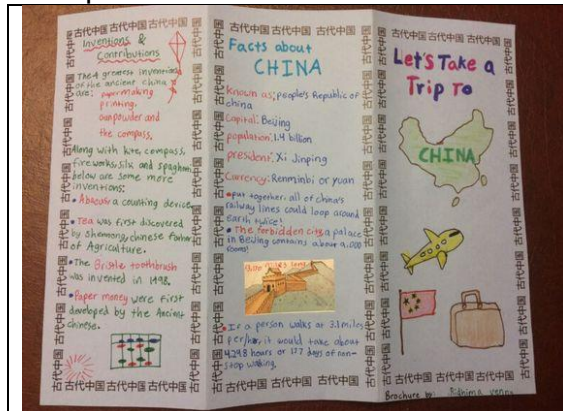 古代中国 古代中国 古代中国
Inventions &
Contributions
The 4 greatest inventions
of the ancient china
are: papermaking
printing,
gunpowder and
the compass.
Along with kite, compass,
fireworks, silk and spaghetti
below are some more
inventions:
Abacus a counting device
Tea was first discovered
by Shennong, chinese father
of Agriculture.
The Bristle toothbrush
was invented in 1498.
Paper money were first
developed by the Ancient
chinese.
古代中国 古代中国 古代中国
古代中国 古代中国 古代中国
Facts about
CHINA
Known as: people's Republic of
china
Capital: Beijing
population: 1.4 billion
president: Xi Jinping
Currency: Renminbi or yuan
put together, all of china's
railway lines could loop around
Earth twice!
The forbidden city a palace
in Beijing contains about 9,000
rooms!
miles long
If a person walks at 3.1 miles
per/hr it would take about
4298 hours or 177 days of non-
stop walking.
古代中国 古代中国 古代中国
古代中国 古代中国 古代中国
Let's Take a
Trip To
CHINA
古代中国 古代中国 古代中国
Brochure by: Ridhima